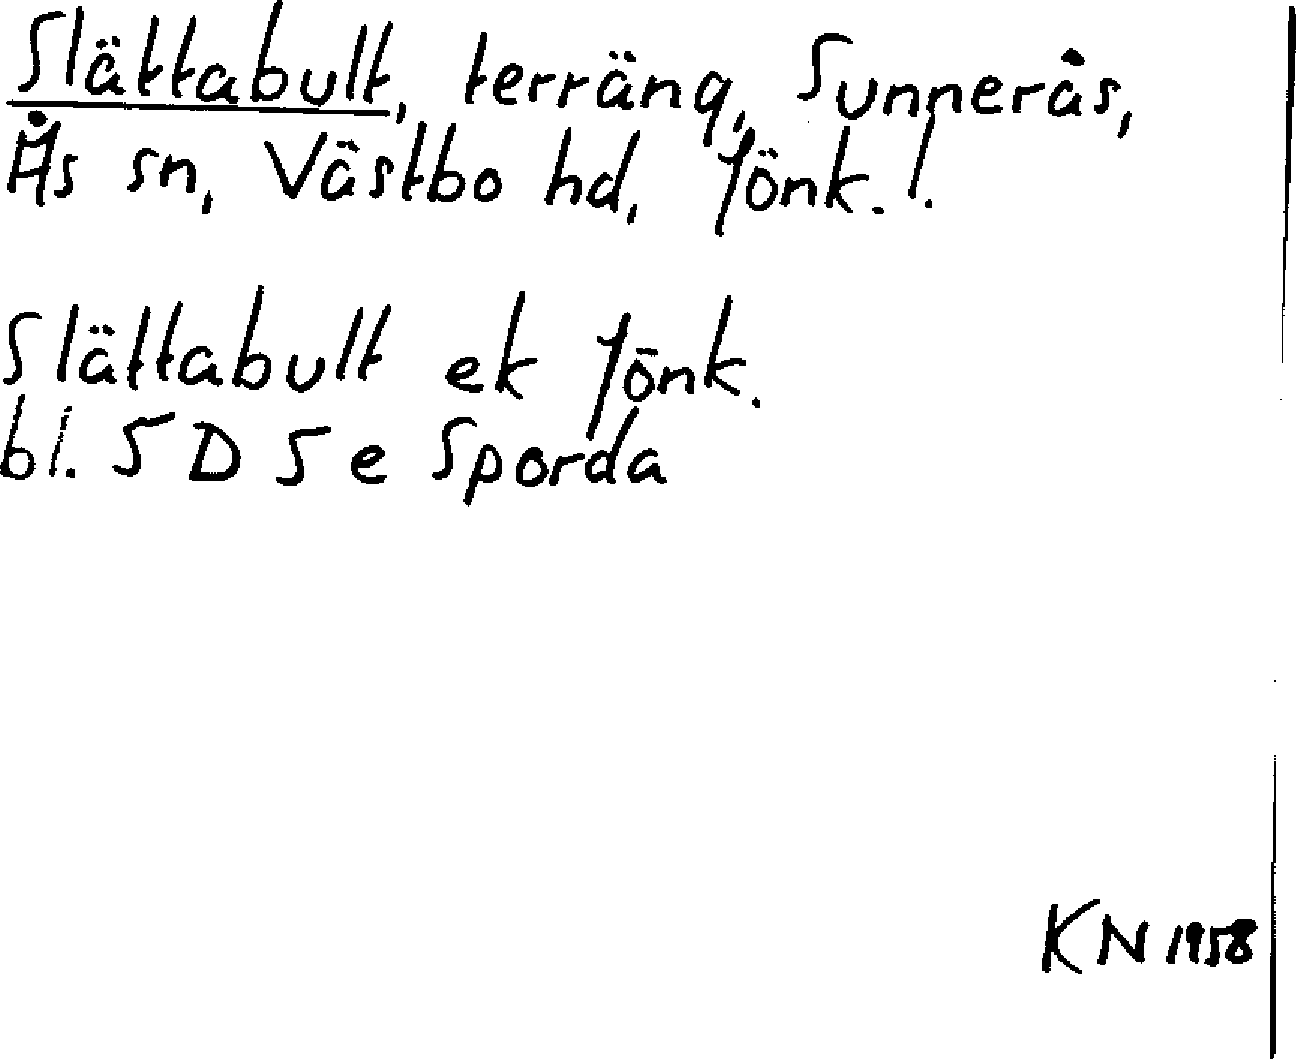 Slättabult, terräng, Sunnerås,
Ås sn, Västbo hd, Jönk. l.
Slättabult ek Jönk.
bl. 5 D 5 e Sporda
KN 1958